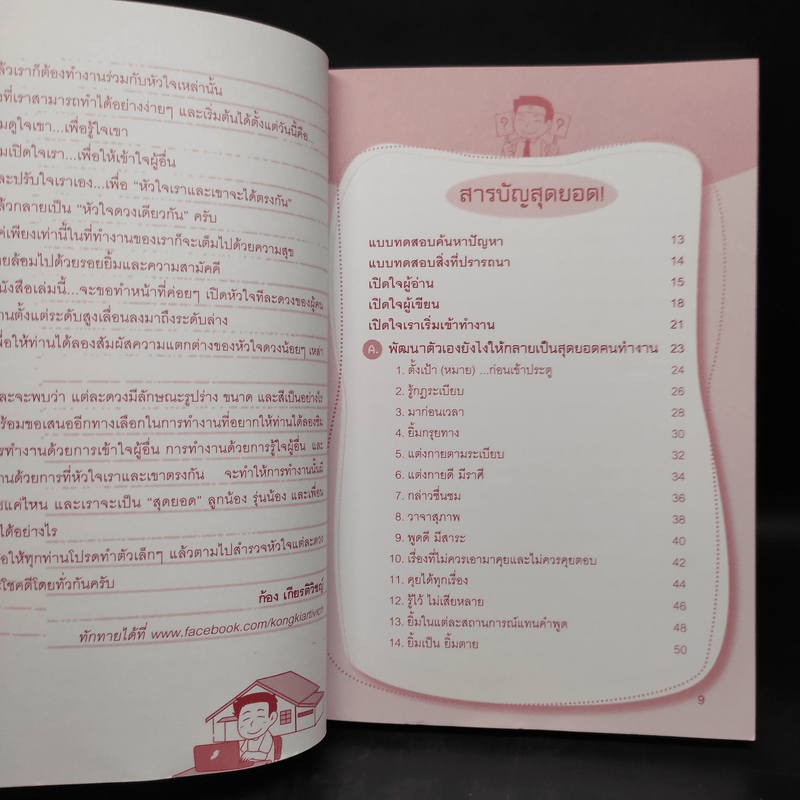 ล้วเราก็ต้องทำงานร่วมกับหัวใจเหล่านั้น
งที่เราสามารถทำได้อย่างง่ายๆ และเริ่มต้นได้ตั้งแต่วันนี้คือ...
มดูใจเขา...เพื่อรู้ใจเขา
มเปิดใจเรา...เพื่อให้เข้าใจผู้อื่น
ละปรับใจเราเอง...เพื่อ “หัวใจเราและเขาจะได้ตรงกัน”
ล้วกลายเป็น “หัวใจดวงเดียวกัน” ครับ
ค่เพียงเท่านี้ในที่ทำงานของเราก็จะเต็มไปด้วยความสุข
ายล้อมไปด้วยรอยยิ้มและความสามัคคี
นังสือเล่มนี้...จะขอทำหน้าที่ค่อยๆ เปิดหัวใจทีละดวงของผู้คน
านตั้งแต่ระดับสูงเลื่อนลงมาถึงระดับล่าง
พื่อให้ท่านได้ลองสัมผัสความแตกต่างของหัวใจดวงน้อยๆ เหล่า
ละจะพบว่า แต่ละดวงมีลักษณะรูปร่าง ขนาด และสีเป็นอย่างไร
ร้อมขอเสนอออีกทางเลือกในการทำงานที่อยากให้ท่านได้ลองชิม
ารทำงานด้วยการเข้าใจผู้อื่น การทำงานด้วยการรู้ใจผู้อื่น และ
านด้วยการที่หัวใจเราและเขาตรงกัน จะทำให้การทำงานนั้นมี
ขแค่ไหน และเราจะเป็น “สุดยอด” ลูกน้อง รุ่นน้อง และเพื่อน
ได้อย่างไร
อให้ทุกท่านโปรดทำตัวเล็กๆ แล้วตามไปสำรวจหัวใจแต่ละดวง
ะโชคดีโดยทั่วกันครับ
ก้อง เกียรติวิชญ์
ทักทายได้ที่ www.facebook.com/kongkiartivich
? ?
สารบัญสุดยอด!
แบบทดสอบค้นหาปัญหา 13
แบบทดสอบสิ่งที่ปรารถนา 14
เปิดใจผู้อ่าน 15
เปิดใจผู้เขียน 18
เปิดใจเราเริ่มเข้าทำงาน 21
A. พัฒนาตัวเองยังไงให้กลายเป็นสุดยอดคนทำงาน 23
1. ตั้งเป้า (หมาย) ...ก่อนเข้าประตู 24
2. รู้กฎระเบียบ 26
3. มาก่อนเวลา 28
4. ยิ้มกรุยทาง 30
5. แต่งกายตามระเบียบ 32
6. แต่งกายดี มีราศี 34
7. กล่าวชื่นชม 36
8. วาจาสุภาพ 38
9. พูดดี มีสาระ 40
10. เรื่องที่ไม่ควรเอามาคุยและไม่ควรคุยตอบ 42
11. คุยได้ทุกเรื่อง 44
12. รู้ไว้ ไม่เสียหลาย 46
13. ยิ้มในแต่ละสถานการณ์แทนคำพูด 48
14. ยิ้มเป็น ยิ้มตาย 50
9